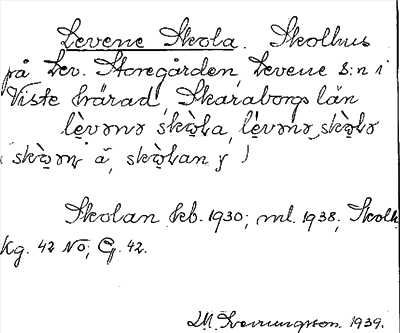 Levene Skola. Skolhus
på Lev. Storegården, Levene s:n i
Viste härad, Skaraborgs län
lèvənə skò̱la, lèvənə, skò̱lə
(skò̱ən å, skò̱lan y)
Skolan kb. 1930; ml. 1938; Skolk.
Kg. 42 NO; G. 42.
1939.